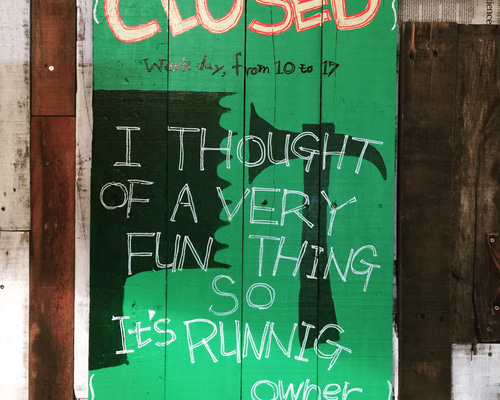 CLOSED
Work day, from 10 to 17
I THOUGHT
OF A VERY
FUN THING
SO
It's RUNNIG
owner